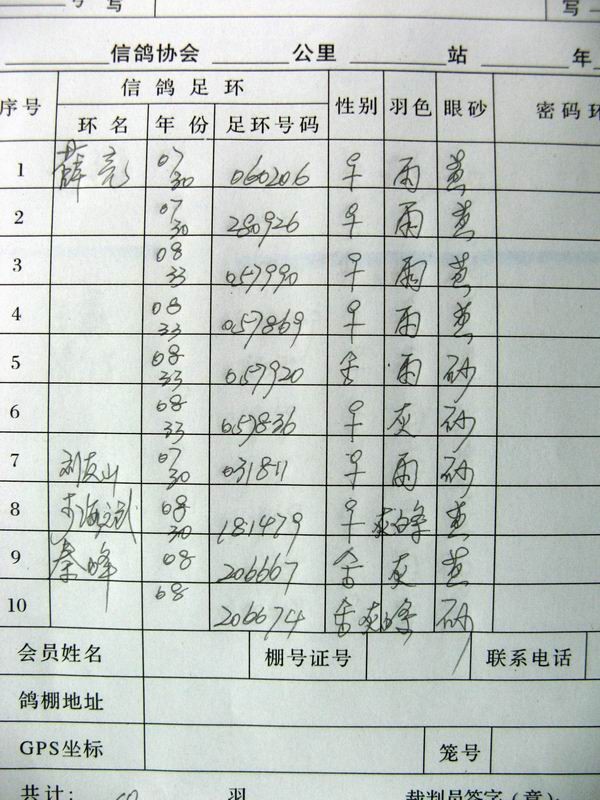 号 写 写
信鸽协会 公里 站 年
序号 信鸽足环 性别 羽色 眼砂 密码环
环名 年份 足环号码
1 薛亮 07 30 060206 ♀ 雨 黄
2 07 30 280926 ♀ 雨 黄
3 08 33 057990 ♀ 雨 黄
4 08 33 057869 ♀ 雨 黄
5 08 33 057920 雨 砂
6 08 33 057836 ♀ 灰 砂
7 刘友山 07 30 031811 ♀ 雨 砂
8 08 30 181479 ♀ 灰白条 黄
9 秦峰 08 206667 灰 黄
10 08 206674 砂
会员姓名 棚号证号 联系电话
鸽棚地址
GPS坐标 笼号
共计: 10 羽 裁判员签字(章):